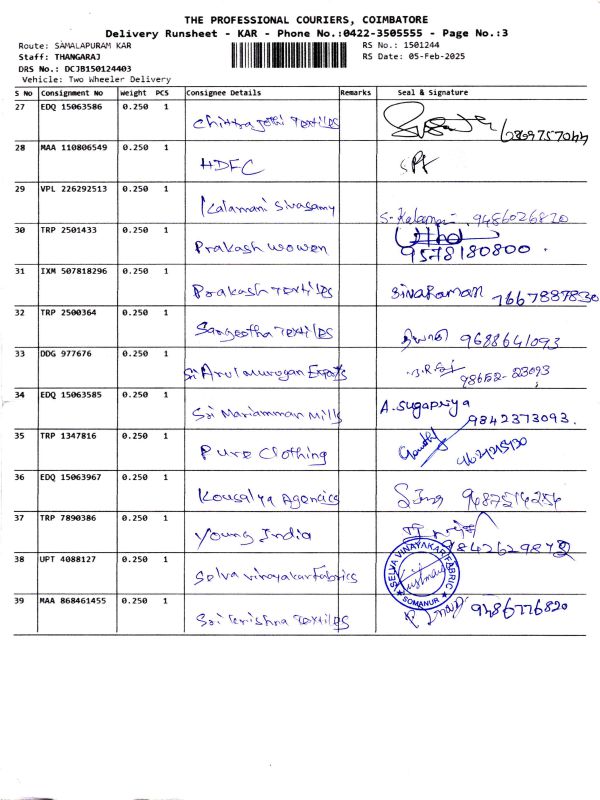 THE PROFESSIONAL COURIERS, COIMBATORE
Delivery Runsheet - KAR - Phone No.:0422-3505555 - Page No.:3
Route: SAMALAPURAM KAR RS No.: 1501244
Staff: THANGARAJ RS Date: 05-Feb-2025
DRS No.: DCJB150124403
Vehicle: Two Wheeler Delivery
S No Consignment No Weight PCS Consignee Details Remarks Seal & Signature
27 EDQ 15063586 0.250 1 Textiles
28 MAA 110806549 0.250 1 HDFC
29 VPL 226292513 0.250 1 Kalamani Sivasamy 9486026820
30 TRP 2501433 0.250 1 Prakash Wowen 9578180800.
31 IXM 507818296 0.250 1 Prakash Textiles Sivaraman 7667887830
32 TRP 2500364 0.250 1 Sangeetha Textiles 9688641093
33 DDG 977676 0.250 1 Sri Arulmurugan Exports
34 EDQ 15063585 0.250 1 Sri Mariamman Mills A. Sugapriya 9842373093.
35 TRP 1347816 0.250 1 Pure Clothing
36 EDQ 15063967 0.250 1 Kousalya Agencies 9687514256
37 TRP 7890386 0.250 1 Young India
38 UPT 4088127 0.250 1 Selva Vinayakar Fabrics SELVA VINAYAKAR FABRIC SOMANUR
39 MAA 868461455 0.250 1 Sri Krishna Textiles 9486776820